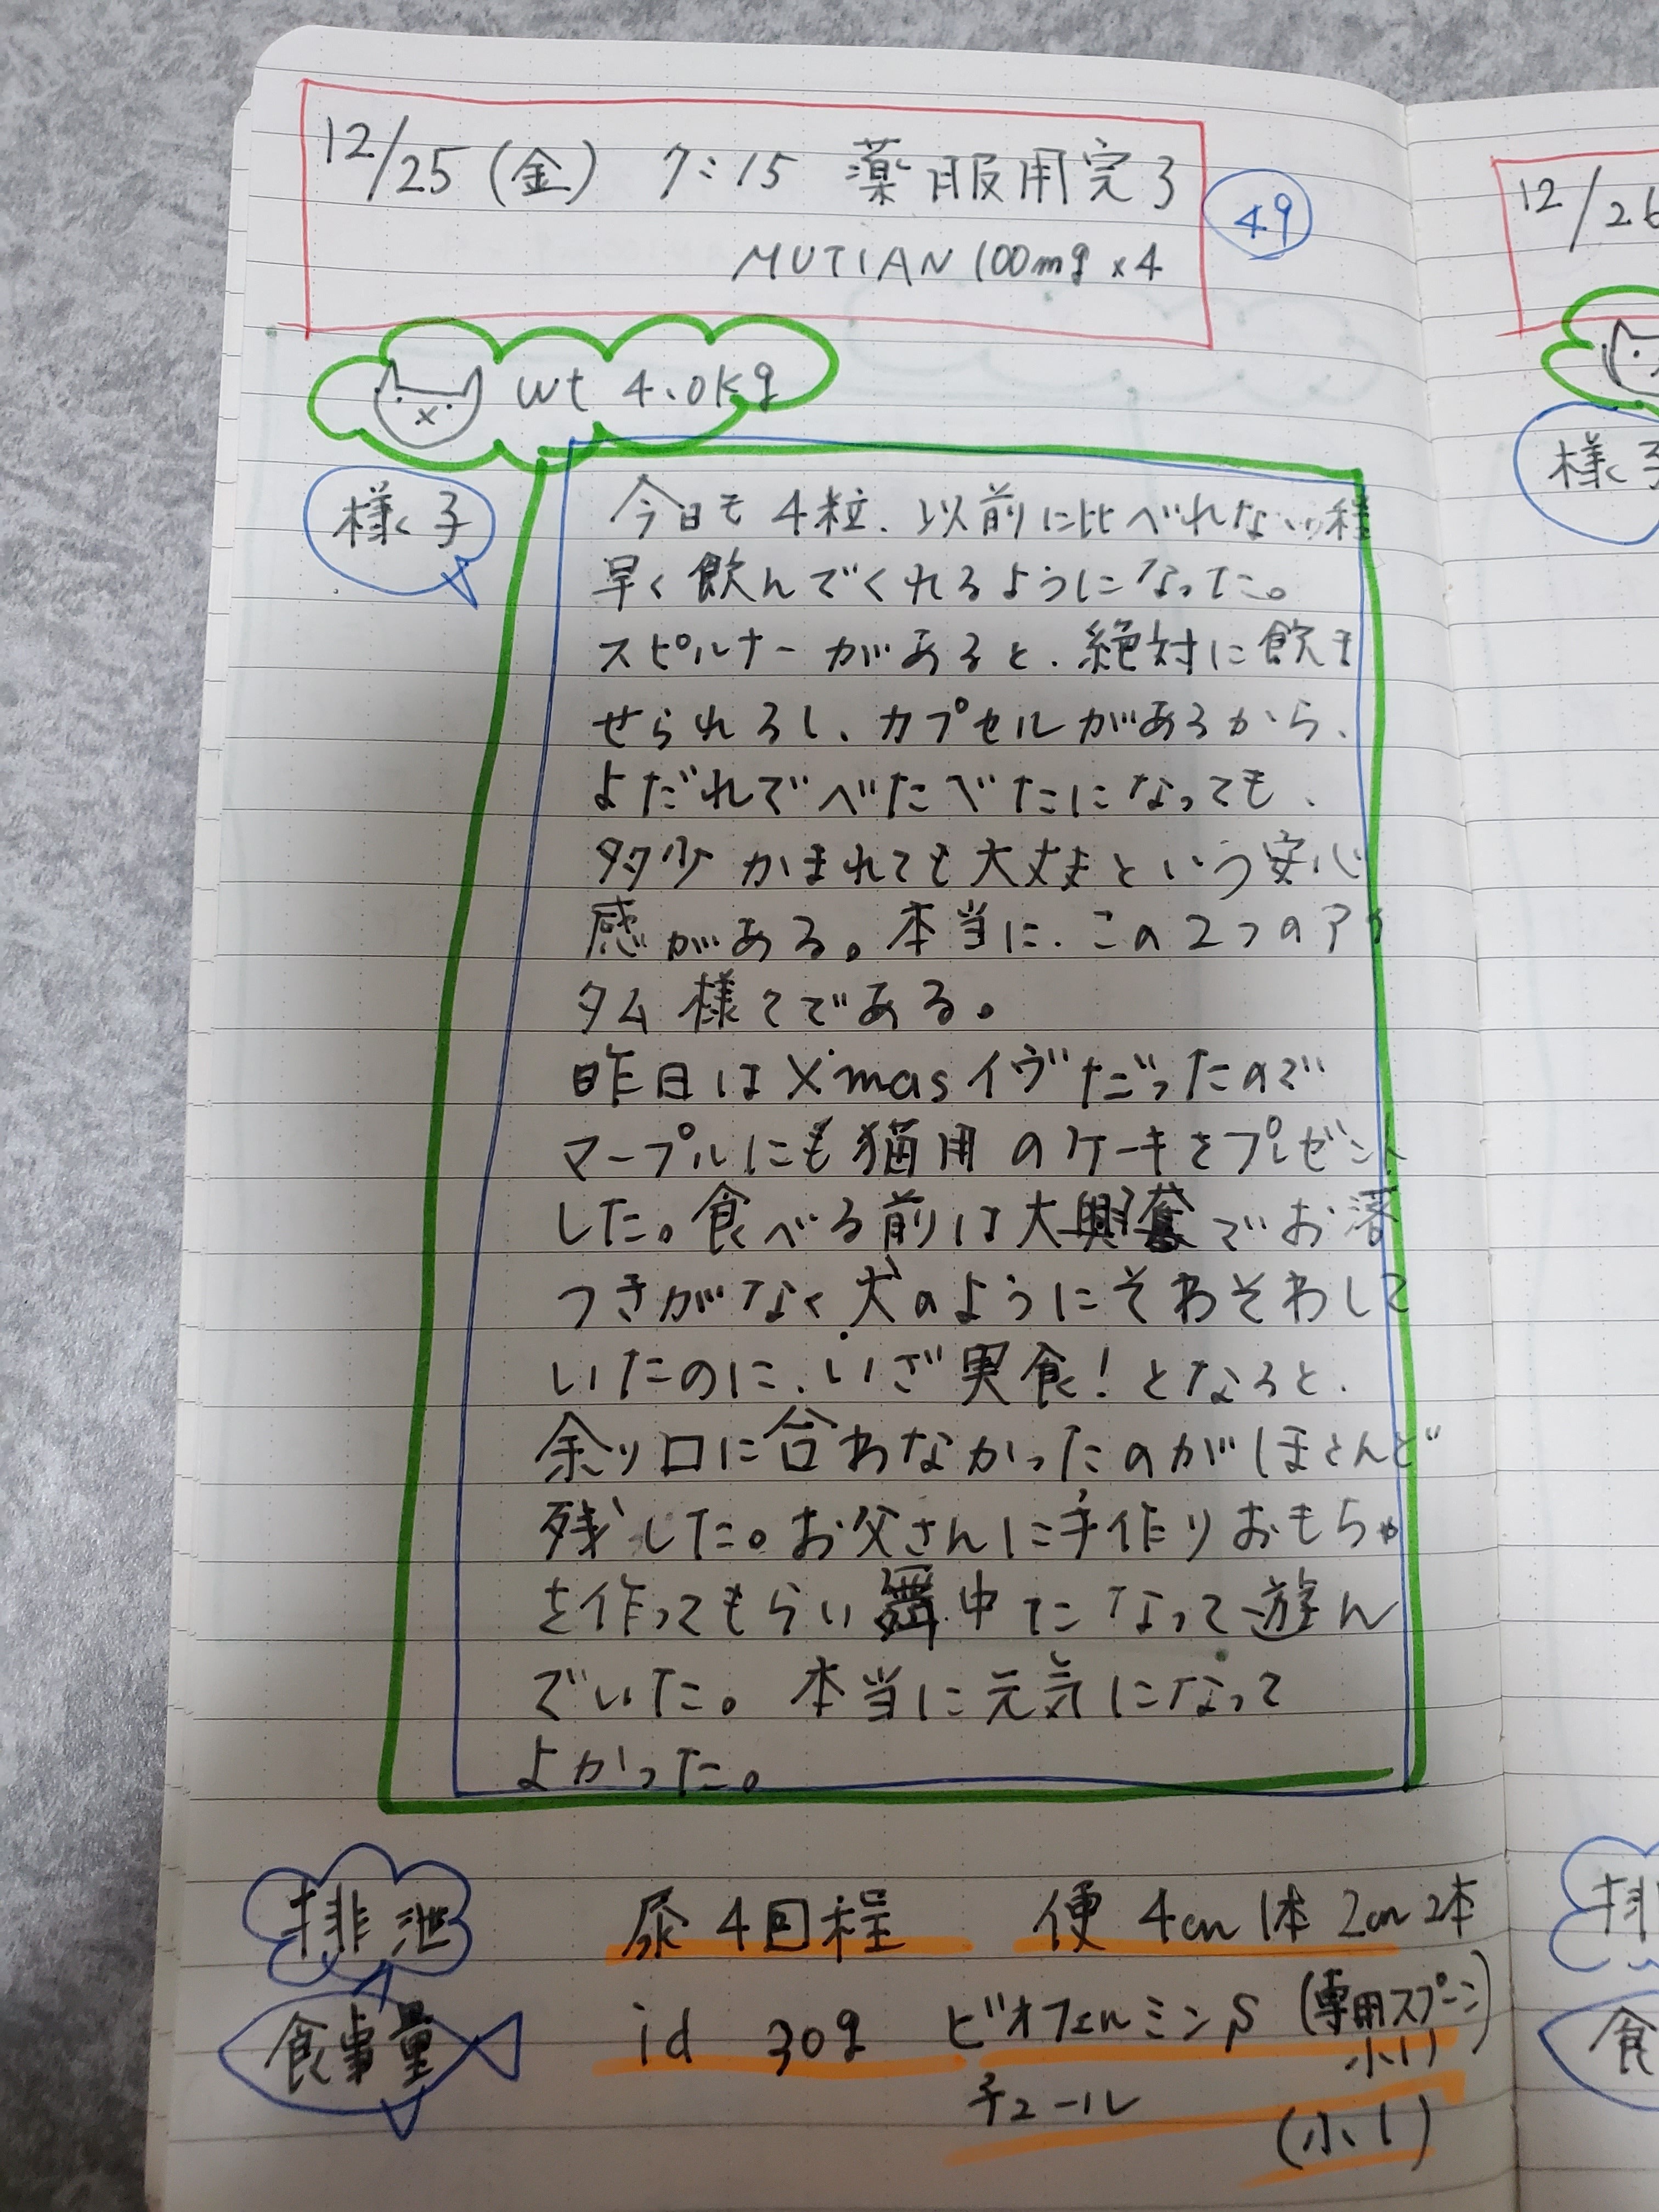 12/25(金) 7:15 薬服用完了
MUTIAN 100mg×4
49
wt 4.0kg
様子
今日も4粒、以前に比べれない程
早く飲んでくれるようになった。
スピルナーがあると、絶対に飲ま
せられるし、カプセルがあるから、
よだれでべたべたになっても、
多少かまれても大丈夫という安心
感がある。本当に、この2つのア
タム様々である。
昨日はX'masイヴだったので
マープルにも猫用のケーキをプレゼント
した。食べる前は大興奮でお落
つきがなく犬のようにそわそわして
いたのに、いざ実食!となると、
余り口に合わなかったのがほとんど
残した。お父さんに手作りおもちゃ
を作ってもらい 中になって遊ん
でいた。本当に元気になって
よかった。
排泄
尿4回程 便 4cm 1本 2cm 2本
食事量
id 30g ビオフェルミンS (専用スプーン
小1)
チュール (小1)
12/26
様子
排
食